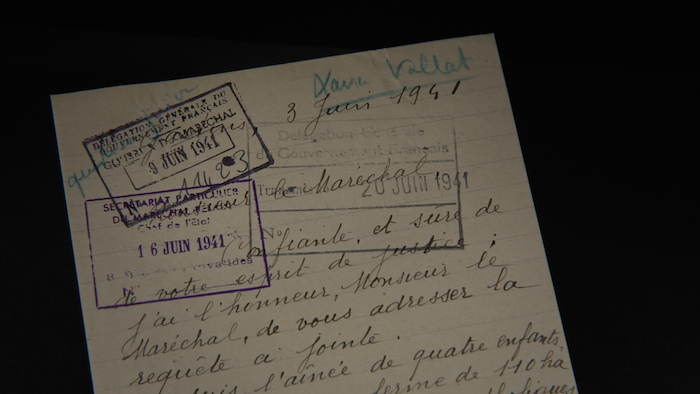 Xavier Vallat
3 Juin 1941
DÉLÉGATION GÉNÉRALE DU
GOUVERNEMENT FRANÇAIS
DU MARÉCHAL
9 JUIN 1941
Délégation Générale
du Gouvernement Français
20 JUIN 1941
No
SECRÉTARIAT PARTICULIER
DU MARÉCHAL PÉTAIN
Chef de l'État
16 JUIN 1941
le Maréchal
Confiante, et sûre de
de votre esprit de justice,
j'ai l'honneur, Monsieur le
Maréchal, de vous adresser la
requête ci jointe.
l'aînée de quatre enfants,
ferme de 110 ha